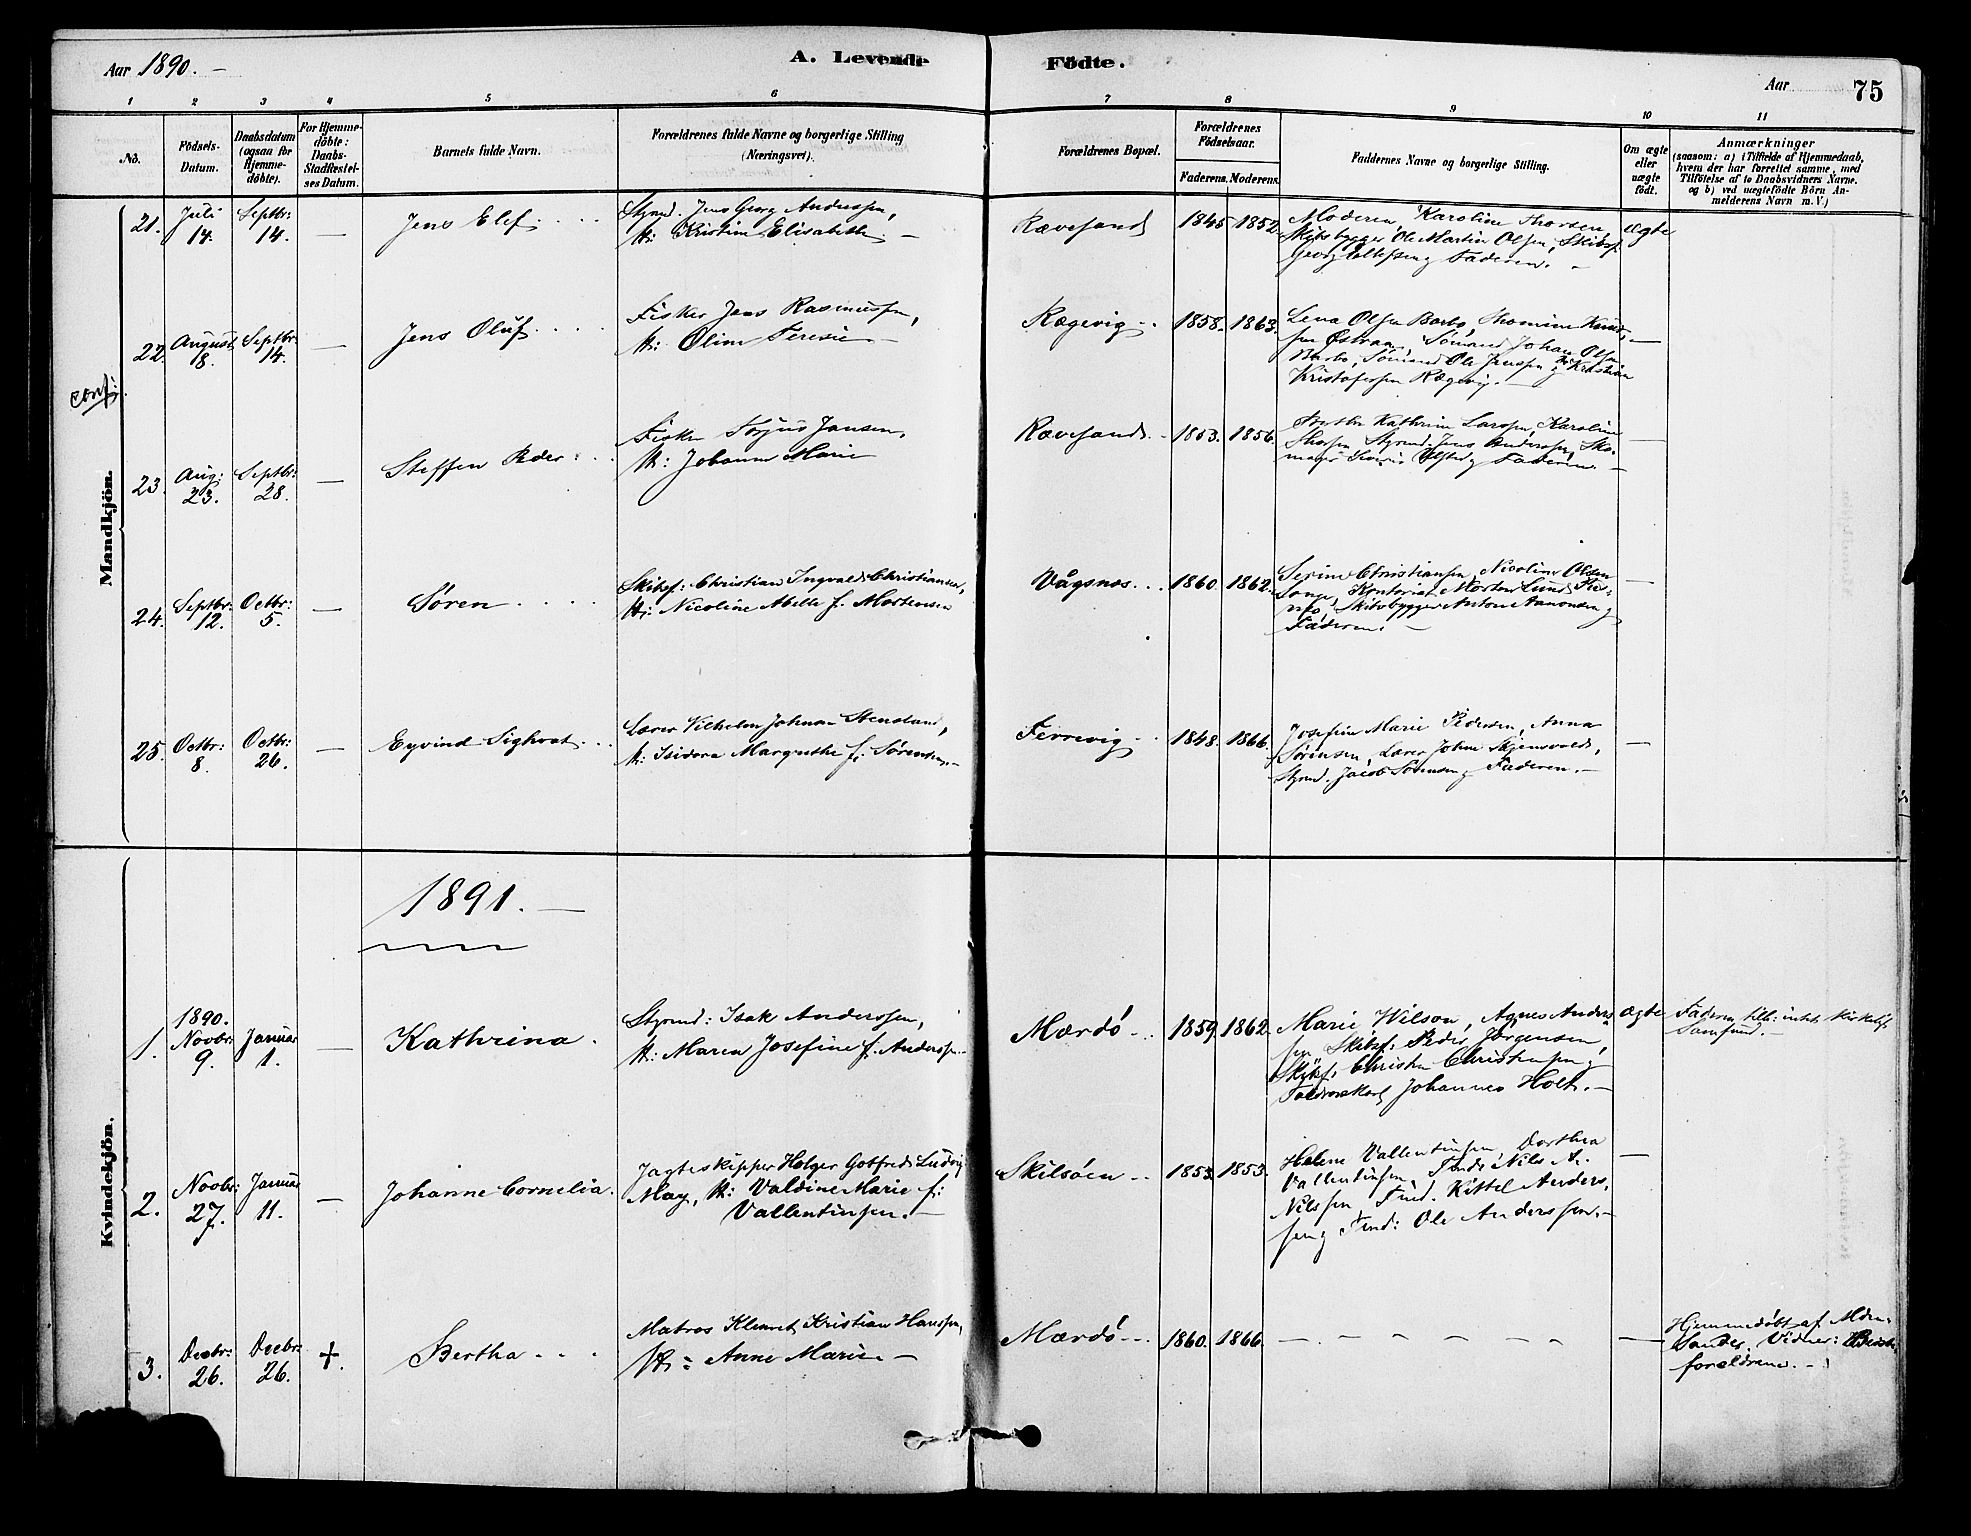 Aar 1890. –
A. Levende Födte.
Aar
75
1 2 3 4 5 6 7 8 9 10 11
No.
Födsels-
Datum.
Daabsdatum
(ogsaa for
Hjemme-
döbte).
For Hjemme-
döbte:
Daabs-
Stadfæstel-
ses Datum.
Barnets fulde Navn.
Forældrenes fulde Navne og borgerlige Stilling
(Næringsvei).
Forældrenes Bopæl.
Forældrenes
Födselsaar.
Faderens. Moderens.
Faddernes Navne og borgerlige Stilling.
Om ægte
eller
uægte
födt.
Anmærkninger
(saasom: a) i Tilfælde af Hjemmedaab,
hvem der har forrettet samme, med
Tilföielse af to Daabsvidners Navne.
og b) ved uægtefödte Börn An-
melderens Navn m. V.)
Mandkjön.
conf:
21.
Juli
14.
Septbr:
14.
—
Jens Elef
Styrmd. Jens Georg Anderssen,
H: Kristine Elisabeth. –
Rævesand
1845 1852.
Moderen, Karoline Thorsen
Skibsbygger Ole Martin Olsen, Skibsf.
Georg Ellefsen og Faderen. –
ægte
22.
August
18.
Septbr:
14.
—
Jens Oluf
Fisker Jens Rasmussen,
H: Oline Teresie –
Rægevig
1858. 1863.
Lena Olsen Barbo, Thomine Knud-
sen Østraa, Sømand Johan Olsen
Barbo, Sømand Ole Jenssen og Kristian
Kristofersen Rægevig. –
—
23.
Aug:
23.
Septbr:
28.
—
Steffen Peder
Fisker Torjus Jansen,
H: Johanne Marie
Rævesand.
1853. 1856.
Berthe Kathrine Larssen, Karoline
Thorsen Styrmd. Jens Anderssen, Sko-
mager &nbsp;og Faderen –
—
24.
Septbr:
12.
Octbr:
5.
—
Søren
Skibsf: Christian Ingvald Christiansen,
H: Nicoline Mille f. Mortensen
Vågsnæs
1860. 1862.
Serine Christiansen, Nicoline Olsen
Songe, Kontorist Morten Lund Ris-
nes, Skibsbygger Anton Aanonsen og
Faderen. –
—
25.
Octbr:
8.
Octbr:
26.
—
Eyvind Sighvat
Lærer Vilhelm Johnsen Stensland,
H: Isidora Margrethe f. Sørensen. –
Ferrevig
1848. 1866.
Josefine Marie Pedersen, Anna
Sørensen, Lærer John Skjensvold,
Styrmd. Jacob Sørensen og Faderen. –
—
1891. –
Kvindekjön.
1.
1890.
Novbr:
9.
Januar
1.
—
Kathrina.
Styrmd: Isak Anderssen,
H: Maren Josefine f. Anderssen
Mærdö
1859. 1862.
Marie Wilson, Agnes Anders-
sen Skibsf: Peder Jørgensen,
Skibsf. Christen Christensen og
Toldroerskarl Johannes Holt. –
ægte
Faderen till: intet kirkeligt
Samfund.
2.
Novbr:
27.
Januar
11.
—
Johanne Cornelia.
Jagteskipper Holger Gotfred Ludvig
May, H: Valdine Marie f:
Vallentinsen. –
Skilsöen
1853. 1853.
Helene Vallentinsen, Dorthea
Vallentinsen, Tmd: Nils A.
Nilssen Tmd. Kittel Anders-
sen og Tmd: Ole Anderssen. –
—
3.
Decbr:
26.
Decbr:
26.
+.
Bertha
Matros Klemet Kristian Hanssen,
H: Anne Marie –
Mærdö
1860. 1866.
— – – – – –
—
Hjemmedøbt af Mdm.
Sander. Vidner: Bedste-
forældrene. –